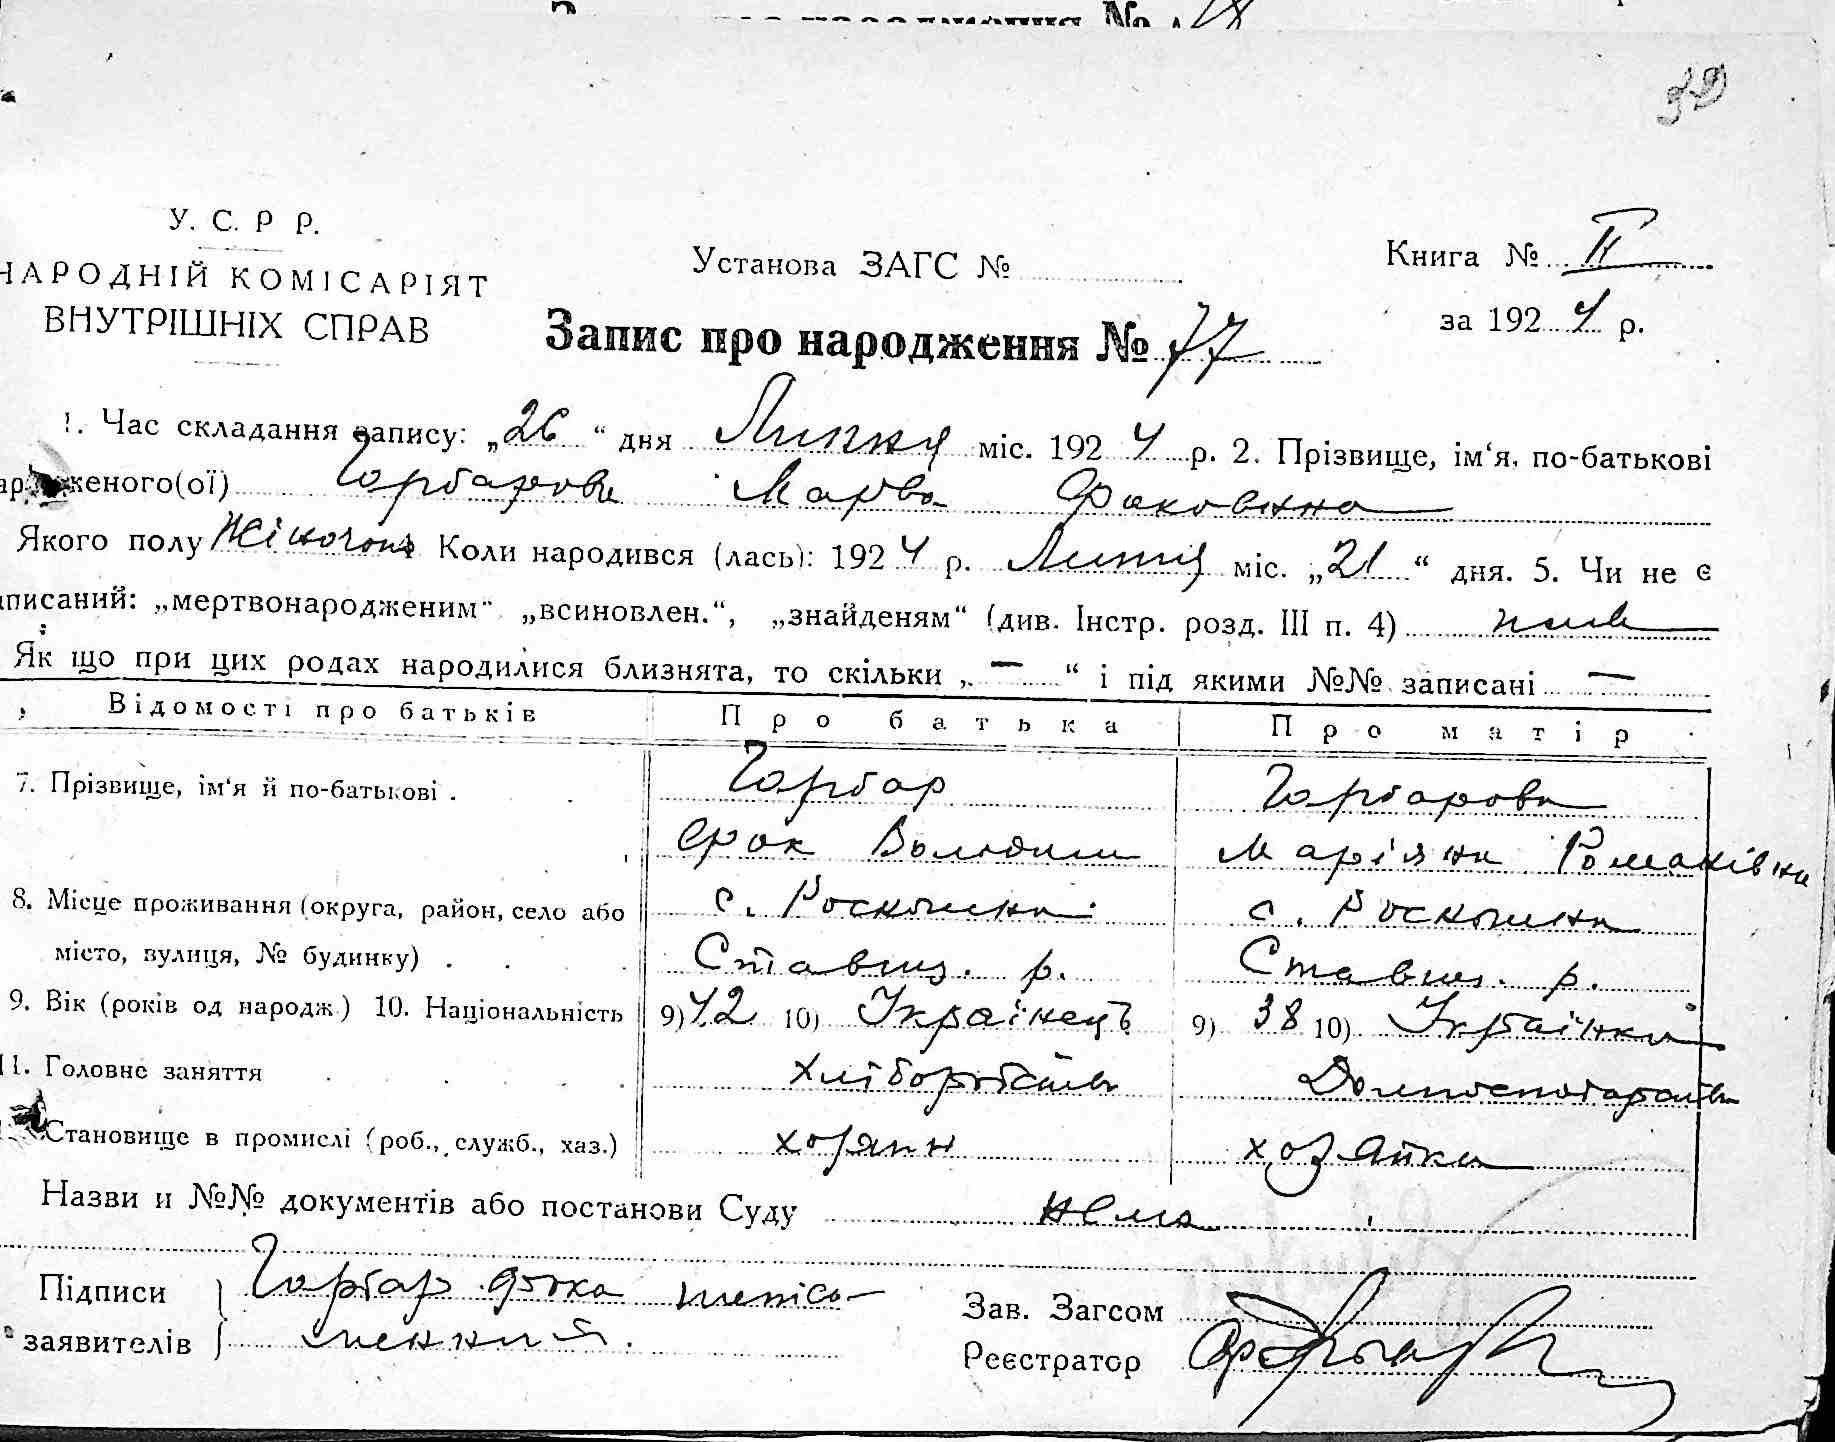 У. С. Р Р.
НАРОДНІЙ КОМІСАРІЯТ
ВНУТРІШНІХ СПРАВ
Установа ЗАГС №
Книга № II
за 1924 р.
Запис про народження № 77
1. Час складання запису: „26“ дня Липня міс. 1924 р. 2. Прізвище, ім‘я, по-батькові
женого(ої) Горбарова Марва
Якого полу Жіночого Коли народився (лась): 1924 р. міс. „21“ дня. 5. Чи не є
писаний: „мертвонародженим“ „всиновлен.“, „знайденям“ (див. Інстр. розд. III п. 4)
Як що при цих родах народилися близнята, то скільки „—“ і під якими №№ записані —
Відомості про батьків Про батька Про матір
7. Прізвище, ім‘я й по-батькові . Горбар Горбарова
Маріяна Романівна
8. Місце проживання (округа, район, село або с. Роскошна с. Роскошна
місто, вулиця, № будинку) . Ставищ. р. Ставищ. р.
9. Вік (років од народж.) 10. Національність 9) 42 10) Українець 9) 38 10) Українка
11. Головне заняття хліборобство
Становище в промислі (роб., служб., хаз.) хозяин хозяйка
Назви и №№ документів або постанови Суду нема
Підписи Горбар
заявителів
Зав. Загсом
Реєстратор